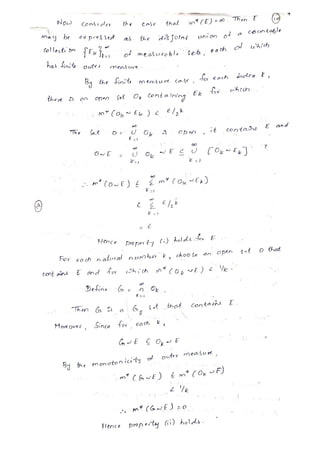 Now consider the case that m*(E)=∞. Then E
may be expressed as the disjoint union of a countable
collection {E_k}_{k=1}^∞ of measurable sets, each of which
has finite outer measure.
By the finite measure case, for each index k,
there is an open set O_k containing E_k for which
m*(O_k ∼ E_k) < ε/2^k
The set O = ∪_{k=1}^∞ O_k is open, it contains E and
O∼E = ∪_{k=1}^∞ O_k ∼ E ⊆ ∪_{k=1}^∞ [O_k ∼ E_k]
∴ m*(O∼E) ≤ Σ_{k=1}^∞ m*(O_k ∼ E_k)
< Σ_{k=1}^∞ ε/2^k
= ε
Hence property (i) holds for E.
For each natural number k, choose an open set O that
contains E and for which m*(O_k ∼ E) < 1/k.
Define G = ∩_{k=1}^∞ O_k.
Then G is a G_δ set that contains E.
Moreover, Since for each k,
G∼E ⊆ O_k ∼ E
By the monotonicity of outer measure,
m*(G∼E) ≤ m*(O_k ∼ E)
< 1/k
∴ m*(G∼E) = 0.
Hence property (ii) holds.